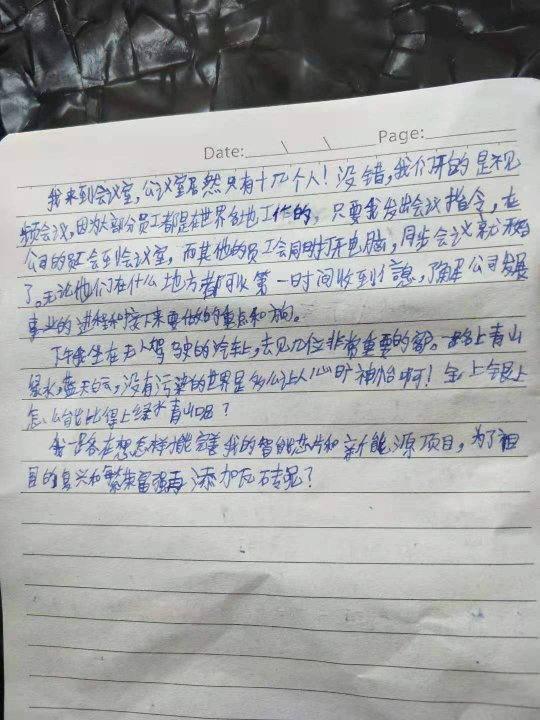 Date: Page:
我来到会议室,会议室居然只有十几个人!没错,我们开的是视
频会议,因为大部分员工都是在世界各地工作的,只要我发出会议指令,在
公司的员工会到会议室,而其他的员工会同时打开电脑,同步会议就开始
了。无论他们在什么地方都可以第一时间收到信息,了解公司发展
事业的进程和接下来要做的重点和方向。
下午我坐在无人驾驶的汽车上,去见几位非常重要的客。一路上青山
绿水,蓝天白云,没有污染的世界是多么让人心旷神怡啊!金山银山
怎么能比得上绿水青山呢?
我一路在想怎样才能完善我的智能芯片和新能源项目,为了祖
国的复兴和繁荣富强再添加瓦砖呢?